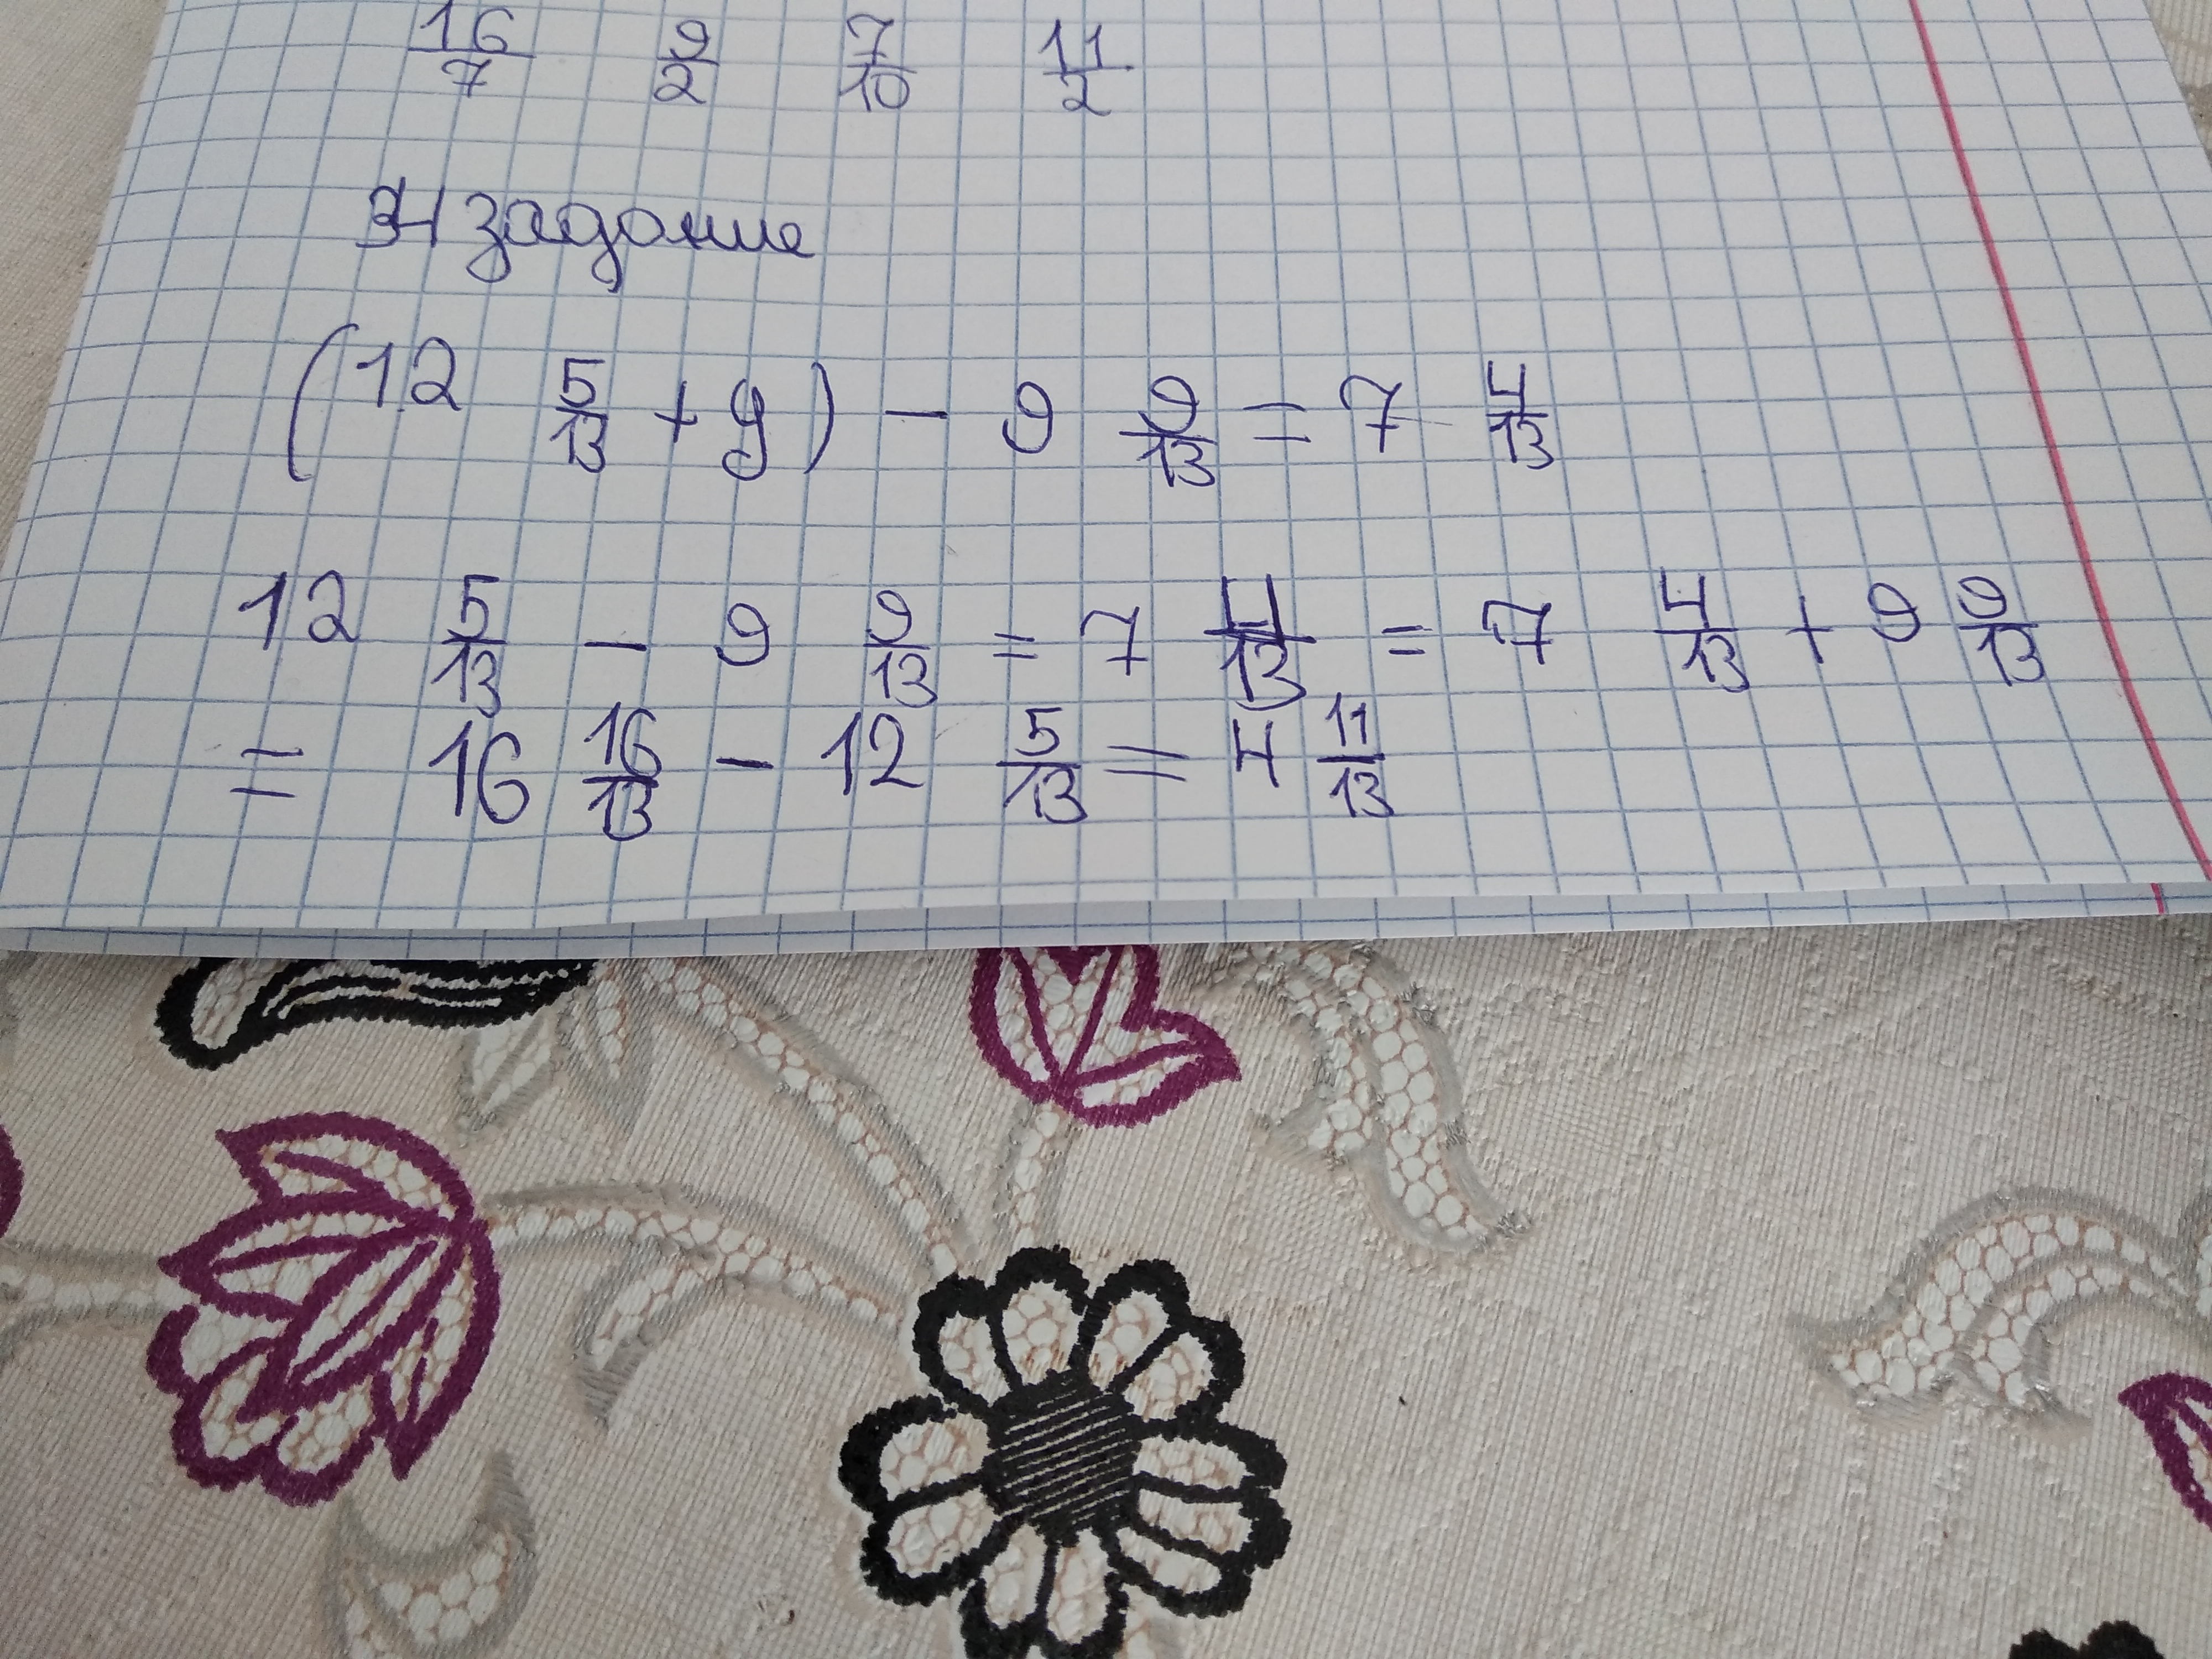 16/7 9/2 7/10 11/2
4 задание
(12 5/13 + y) - 9 9/13 = 7 4/13
12 5/13 - 9 9/13 = 7 4/13 = 7 4/13 + 9 9/13
= 16 16/13 - 12 5/13 = 4 11/13